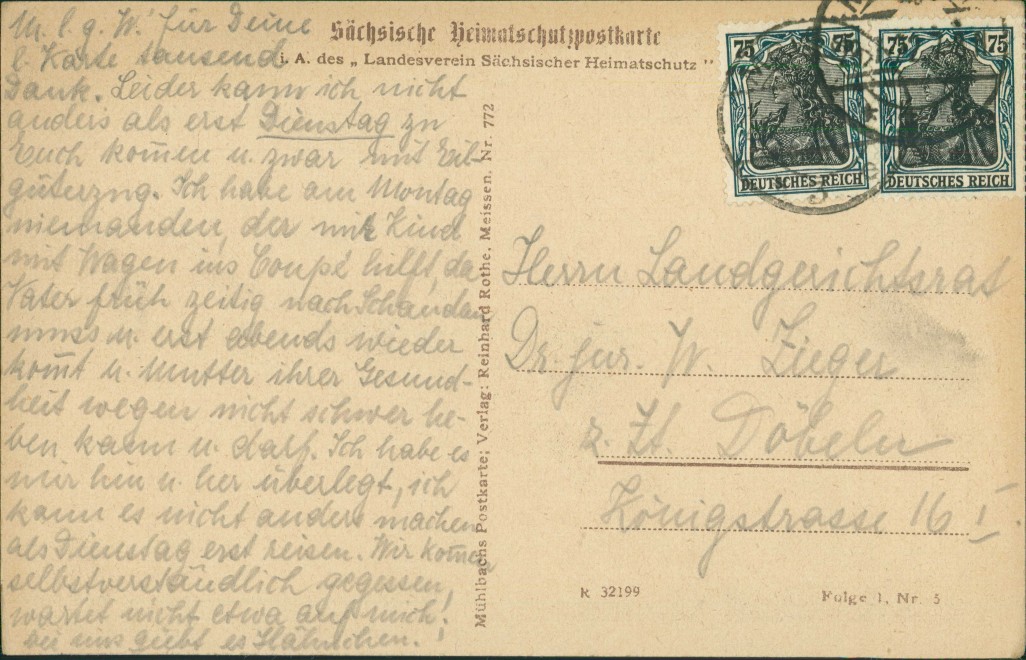 M. l. g. W.! für Deine
l. Karte tausend
Dank. Leider kann ich nicht
anders als erst Dienstag zu
Euch kom̄en u. zwar mit Eil-
güterzug. Ich habe am Montag
niemanden, der mir Kind
mit Wagen ins Coupé hilft, da
Vater früh zeitig nach Schandau
muss u. erst abends wieder
kom̄t u. Mutter ihrer Gesund-
heit wegen nicht schwer he-
ben kann u. darf. Ich habe es
mir hin u. her überlegt, ich
kann es nicht anders machen
als Dienstag erst reisen. Wir kom̄en
selbstverständlich gegessen,
wartet nicht etwa auf mich!
Bei uns giebt es Hähnchen.!
Sächsische Heimatschutzpostkarte
i. A. des „Landesverein Sächsischer Heimatschutz"
Mühlbachs Postkarte; Verlag: Reinhard Rothe, Meissen. Nr. 772
75 75
DEUTSCHES REICH
75 75
DEUTSCHES REICH
Herrn Landgerichtsrat
Dr. jur. W. Zieger
z. Zt. Döbeln
Königstrasse 16 I
R 32199
Folge 1, Nr. 5